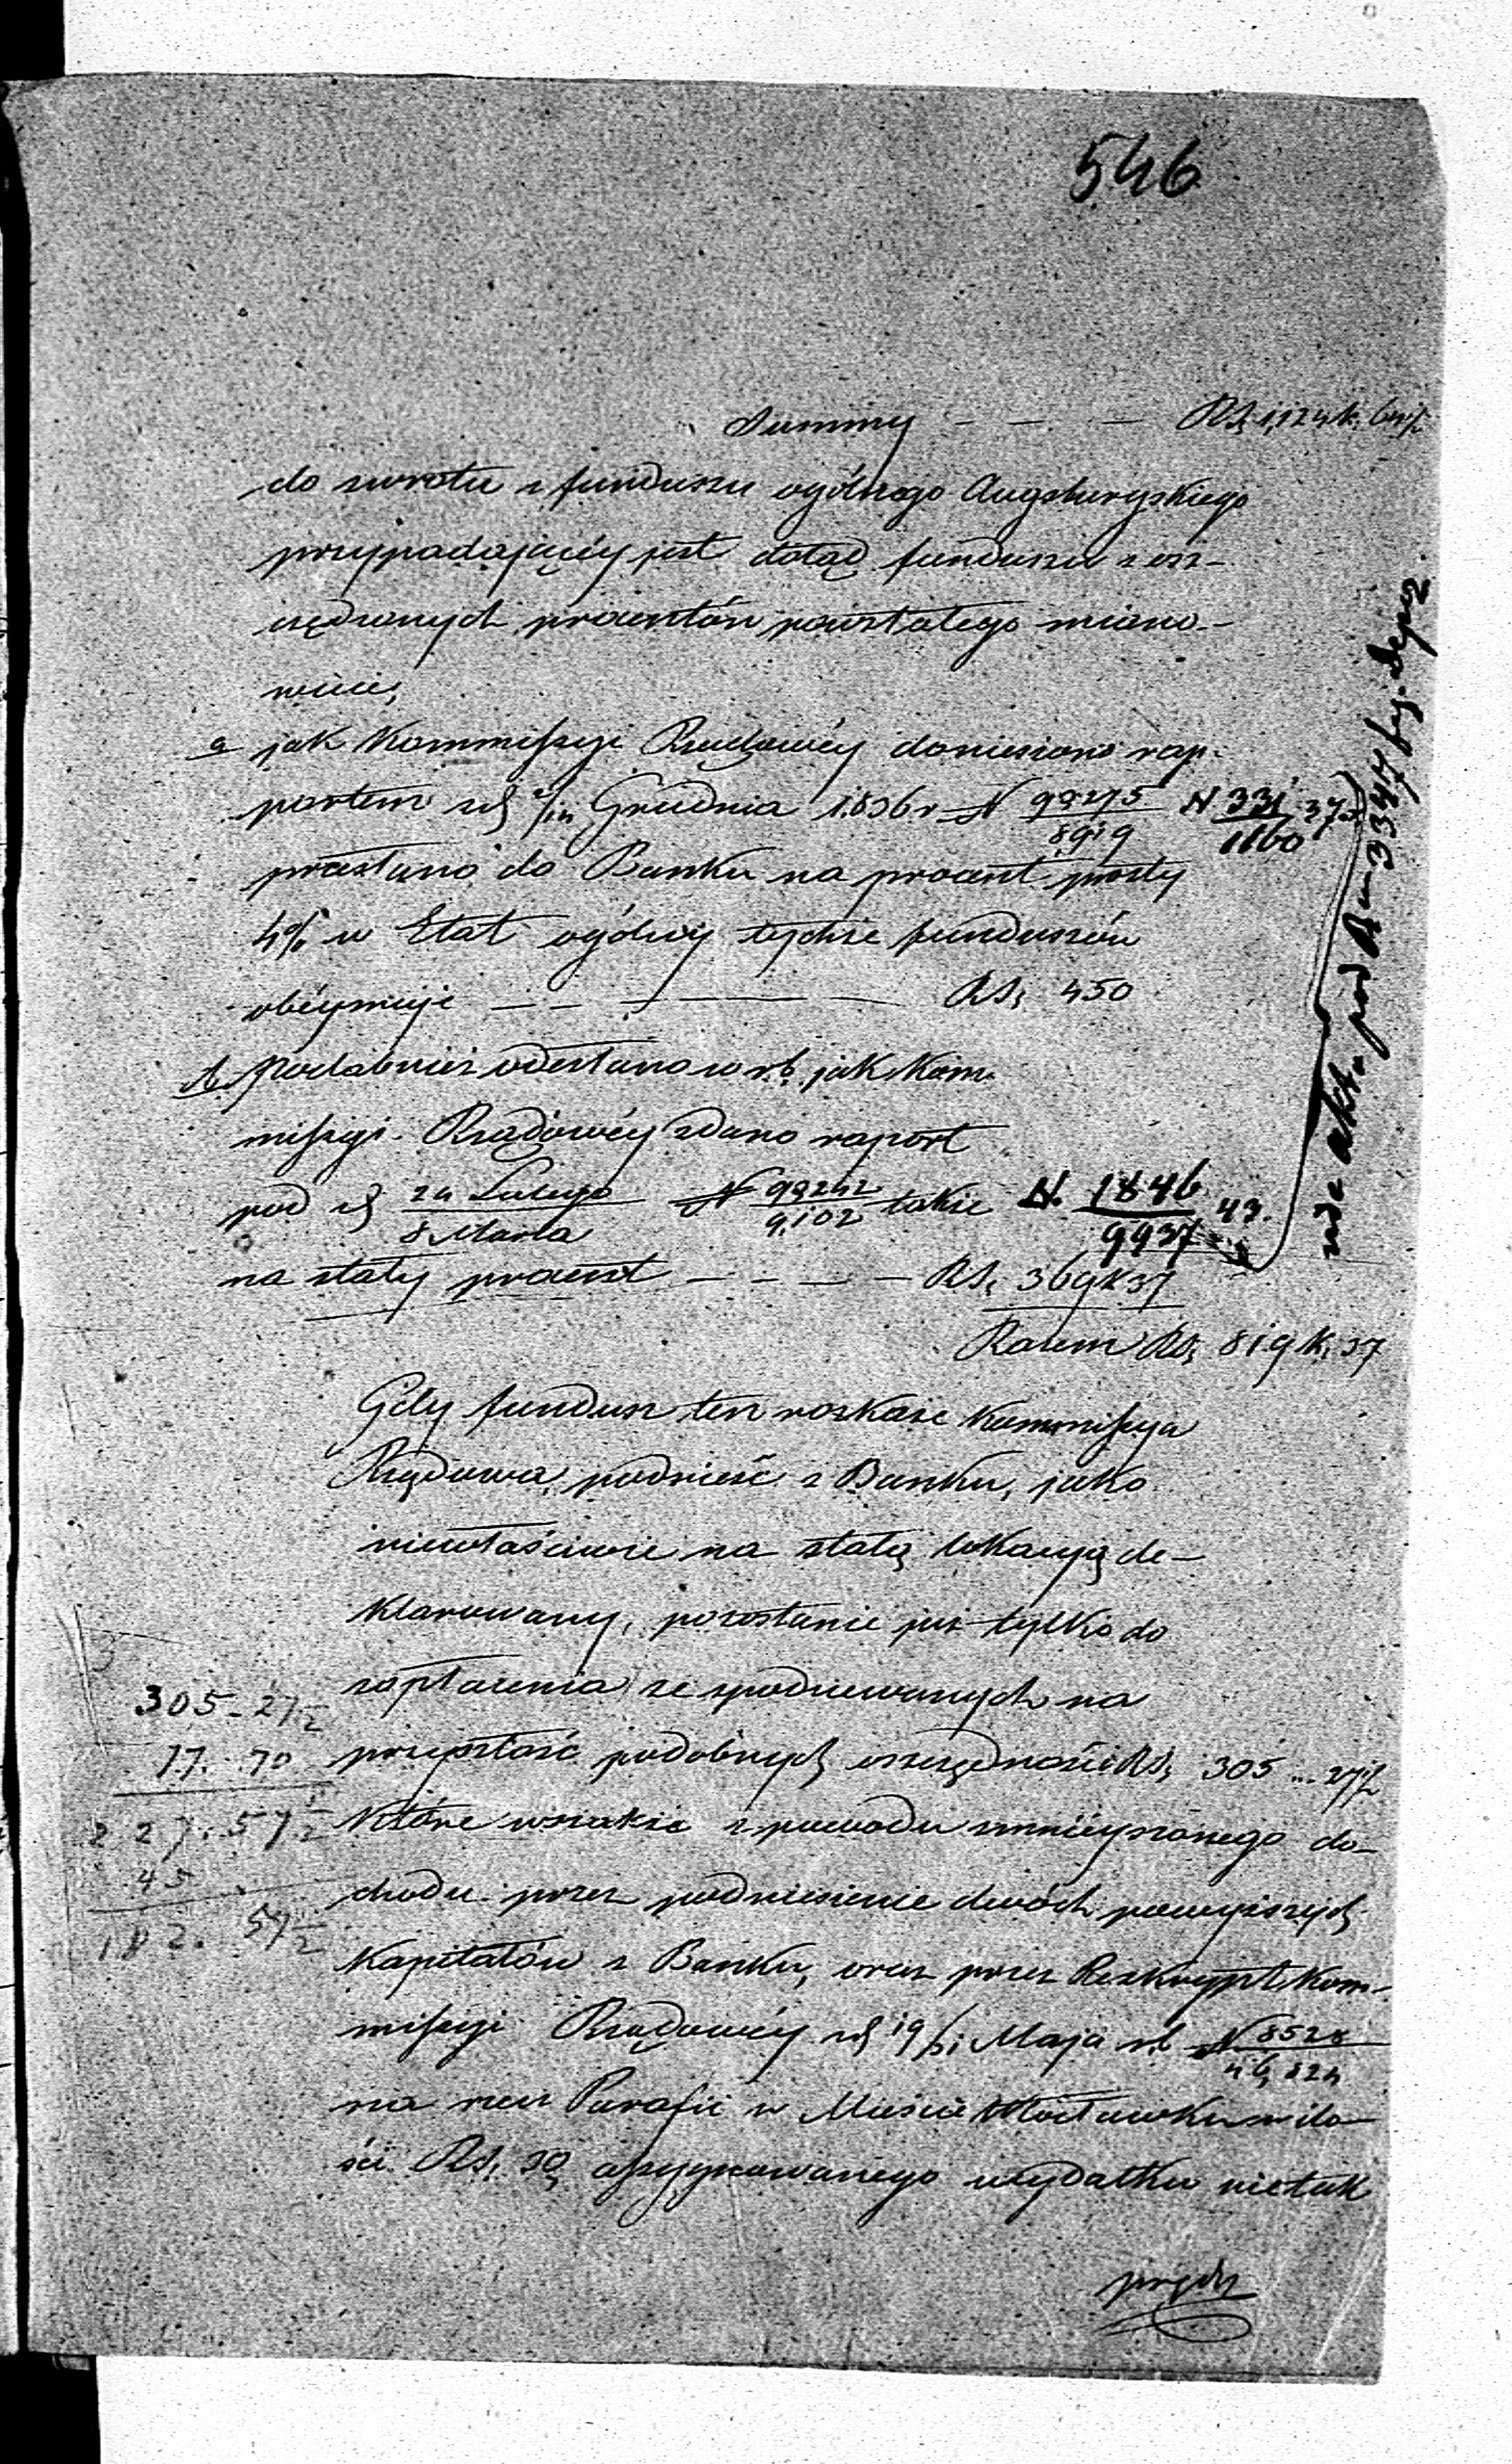 546
Summy — — — RS. 1,124 k. 64½
do zwrotu z funduszu ogólnego Augsburgskiego
przypadającéy jest dotąd funduszu z osz-
czędzonych procentów powstałego miano-
wicie,
a jak Kommissyi Rządowéy doniesiono rap-
portem z d. Grudnia 1836 r N 99275/8919 N 331/1160 37.
przesłano do Banku na procent prosty
4% w Etat ogólny tychże funduszów
obéymuje — — — — RS. 450
b. Podobnież odesłano w r.b. jak Kom-
missyi Rządowéy zdano raport
pod d. 24 Lutego/8 Marca N 99242/9,102 takie N. 1846/9937 43.
na stały procent — — — — RS. 369 k 37
Razem RS. 819 k. 37
vide akta pod Nr 3347 fg. Depoz.
Gdy fundusz ten rozkaże Kommissya
Rządowa, podnieść z Banku, jako
niewłaściwie na stałą lokacyą de-
klarowany, pozostanie już tylko do
zapłacenia ze spodziewanych na
przyszłość podobnych oszczędności RS. 305 ... 27½
które wszakże z powodu zmniéyszonego do-
chodu przez podniesienie dwóch powyższych
Kapitałów z Banku, oraz przez Reskrypt Kom-
missyi Rządowéy z d. 19/31 Maja r.b. N 8528/46,824
na rzecz Parafii w Mieście Włocławku w ilo-
ści RS. 30, assygnowanego wydatku nie tak
prędz
305 - 27½
77. 70
227. 57½
45
182. 57½